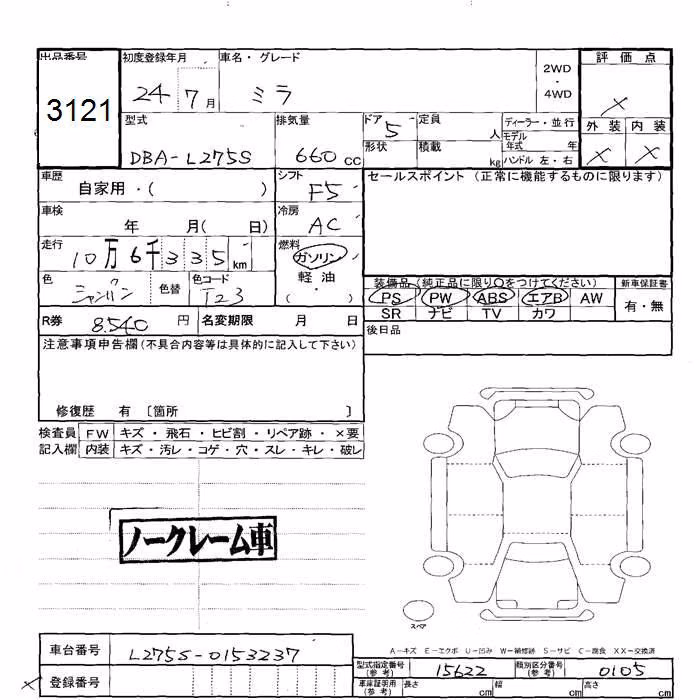 出品番号 初度登録年月 車名・グレード 2WD・4WD 評価点
3121 24 7月 ミラ ×
型式 排気量 ドア 5 定員 人 ディーラー・並行 外装 内装
DBA-L275S 660cc 形状 積載 kg モデル年式 年 ハンドル 左・右 × ×
車歴 自家用・( ) シフト F5 セールスポイント (正常に機能するものに限ります)
車検 年 月( 日) 冷房 AC
走行 10万6千335km 燃料 ガソリン 軽油・( )
色 シャンパン 色替 色コード T23
装備品 (純正品に限り○をつけてください) 新車保証書
PS PW ABS エアB AW 有・無
SR ナビ TV カワ
R券 8.540円 名変期限 月 日 後日品
注意事項申告欄(不具合内容等は具体的に記入して下さい)
修復歴 有 〔箇所 〕
検査員 FW キズ・飛石・ヒビ割・リペア跡・×要
記入欄 内装 キズ・汚レ・コゲ・穴・スレ・キレ・破レ
ノークレーム車
スペア
A-キズ E-エクボ U-凹み W-補修跡 S-サビ C-腐食 XX-交換済
車台番号 L275S-0153237 型式指定番号(参考) 15622 類別区分番号(参考) 0105
× 登録番号 車庫証明用(参考) 長さ cm 幅 cm 高さ cm